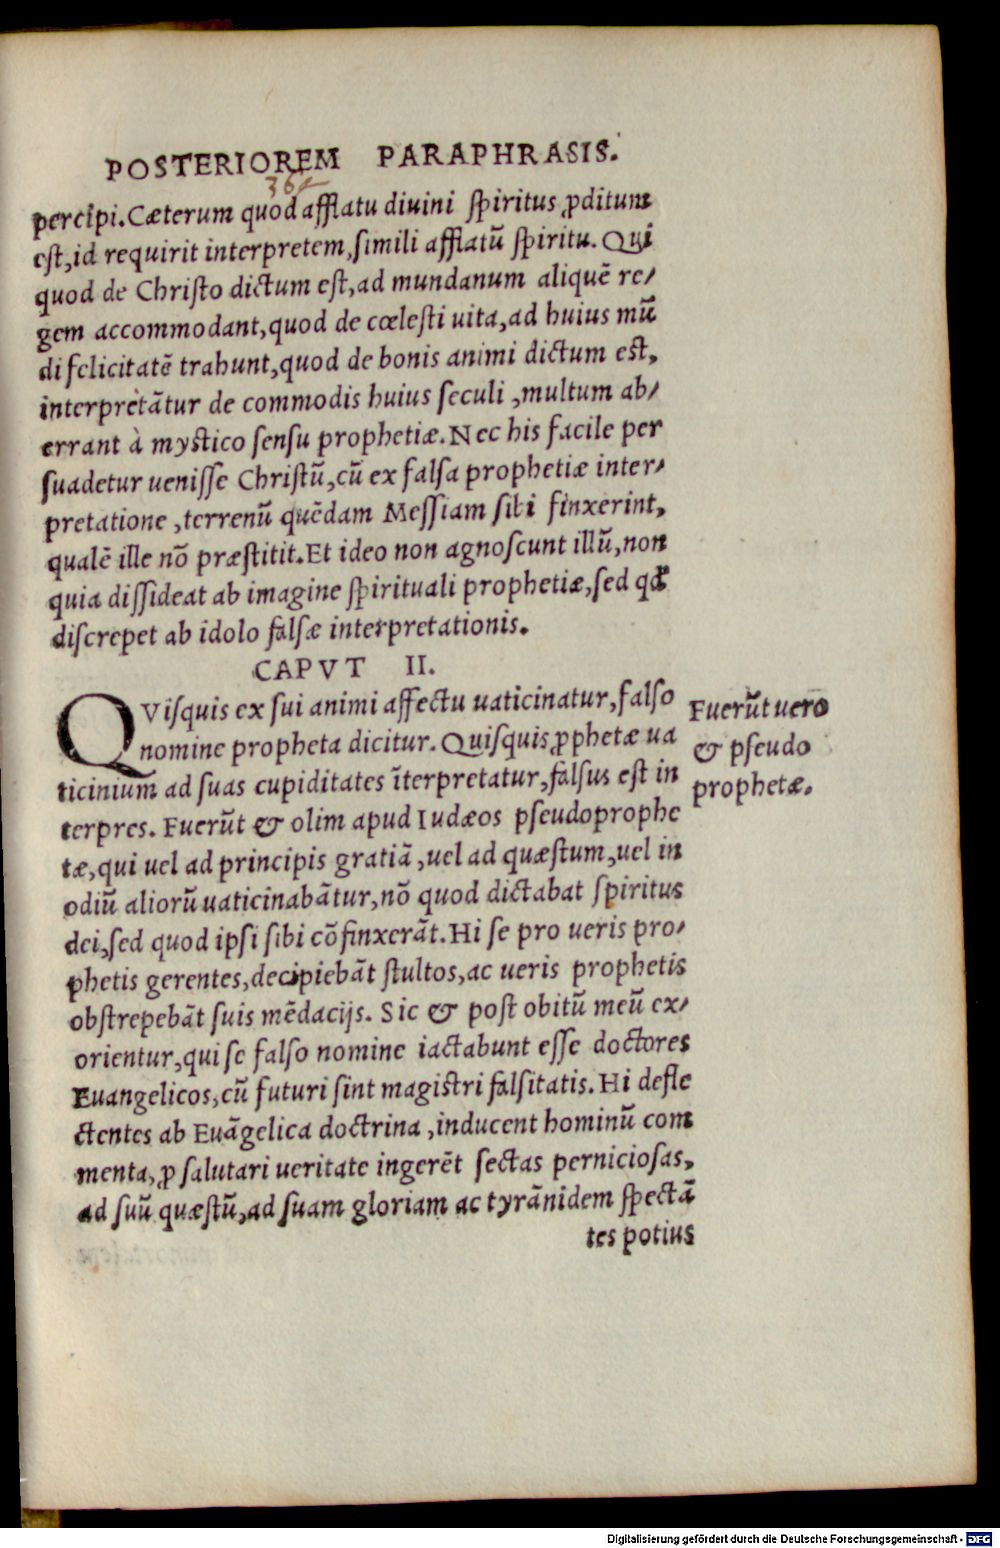 POSTERIOREM PARAPHRASIS.
364
percipi. Cæterum quod afflatu diuini spiritus ꝓditum
est, id requirit interpretem, simili afflatũ spiritu. Qui
quod de Christo dictum est, ad mundanum aliquẽ re/
gem accommodant, quod de cœlesti uita, ad huius mũ
di felicitatẽ trahunt, quod de bonis animi dictum est,
interpretãtur de commodis huius seculi, multum ab/
errant à mystico sensu prophetiæ. Nec his facile per
suadetur uenisse Christũ, cũ ex falsa prophetiæ inter/
pretatione, terrenũ quẽdam Messiam sibi finxerint,
qualẽ ille nõ præstitit. Et ideo non agnoscunt illũ, non
quia dissideat ab imagine spirituali prophetiæ, sed qđ
discrepet ab idolo falsæ interpretationis.
CAPVT II.
QVisquis ex sui animi affectu uaticinatur, falso
nomine propheta dicitur. Quisquis ꝓphetæ ua
ticinium ad suas cupiditates ĩterpretatur, falsus est in
terpres. Fuerũt & olim apud Iudæos pseudoprophe
tæ, qui uel ad principis gratiã, uel ad quæstum, uel in
odiũ aliorũ uaticinabãtur, nõ quod dictabat spiritus
dei, sed quod ipsi sibi cõfinxerãt. Hi se pro ueris pro/
phetis gerentes, decipiebãt stultos, ac ueris prophetis
obstrepebãt suis mẽdacijs. Sic & post obitũ meũ ex/
orientur, qui se falso nomine iactabunt esse doctores
Euangelicos, cũ futuri sint magistri falsitatis. Hi defle
ctentes ab Euãgelica doctrina, inducent hominũ com
menta, ꝓ salutari ueritate ingerẽt sectas perniciosas,
ad suũ quæstũ, ad suam gloriam ac tyrãnidem spectã
tes potius
Fuerũt uero
& pseudo
prophetæ.
Digitalisierung gefördert durch die Deutsche Forschungsgemeinschaft - DFG